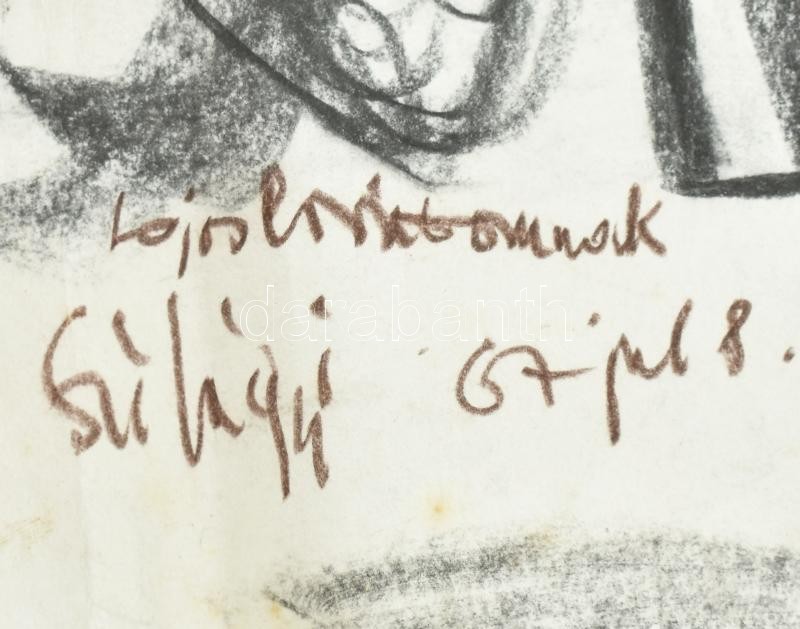 Lajos barátomnak
Szilágyi 67 jul 8.
darabanth